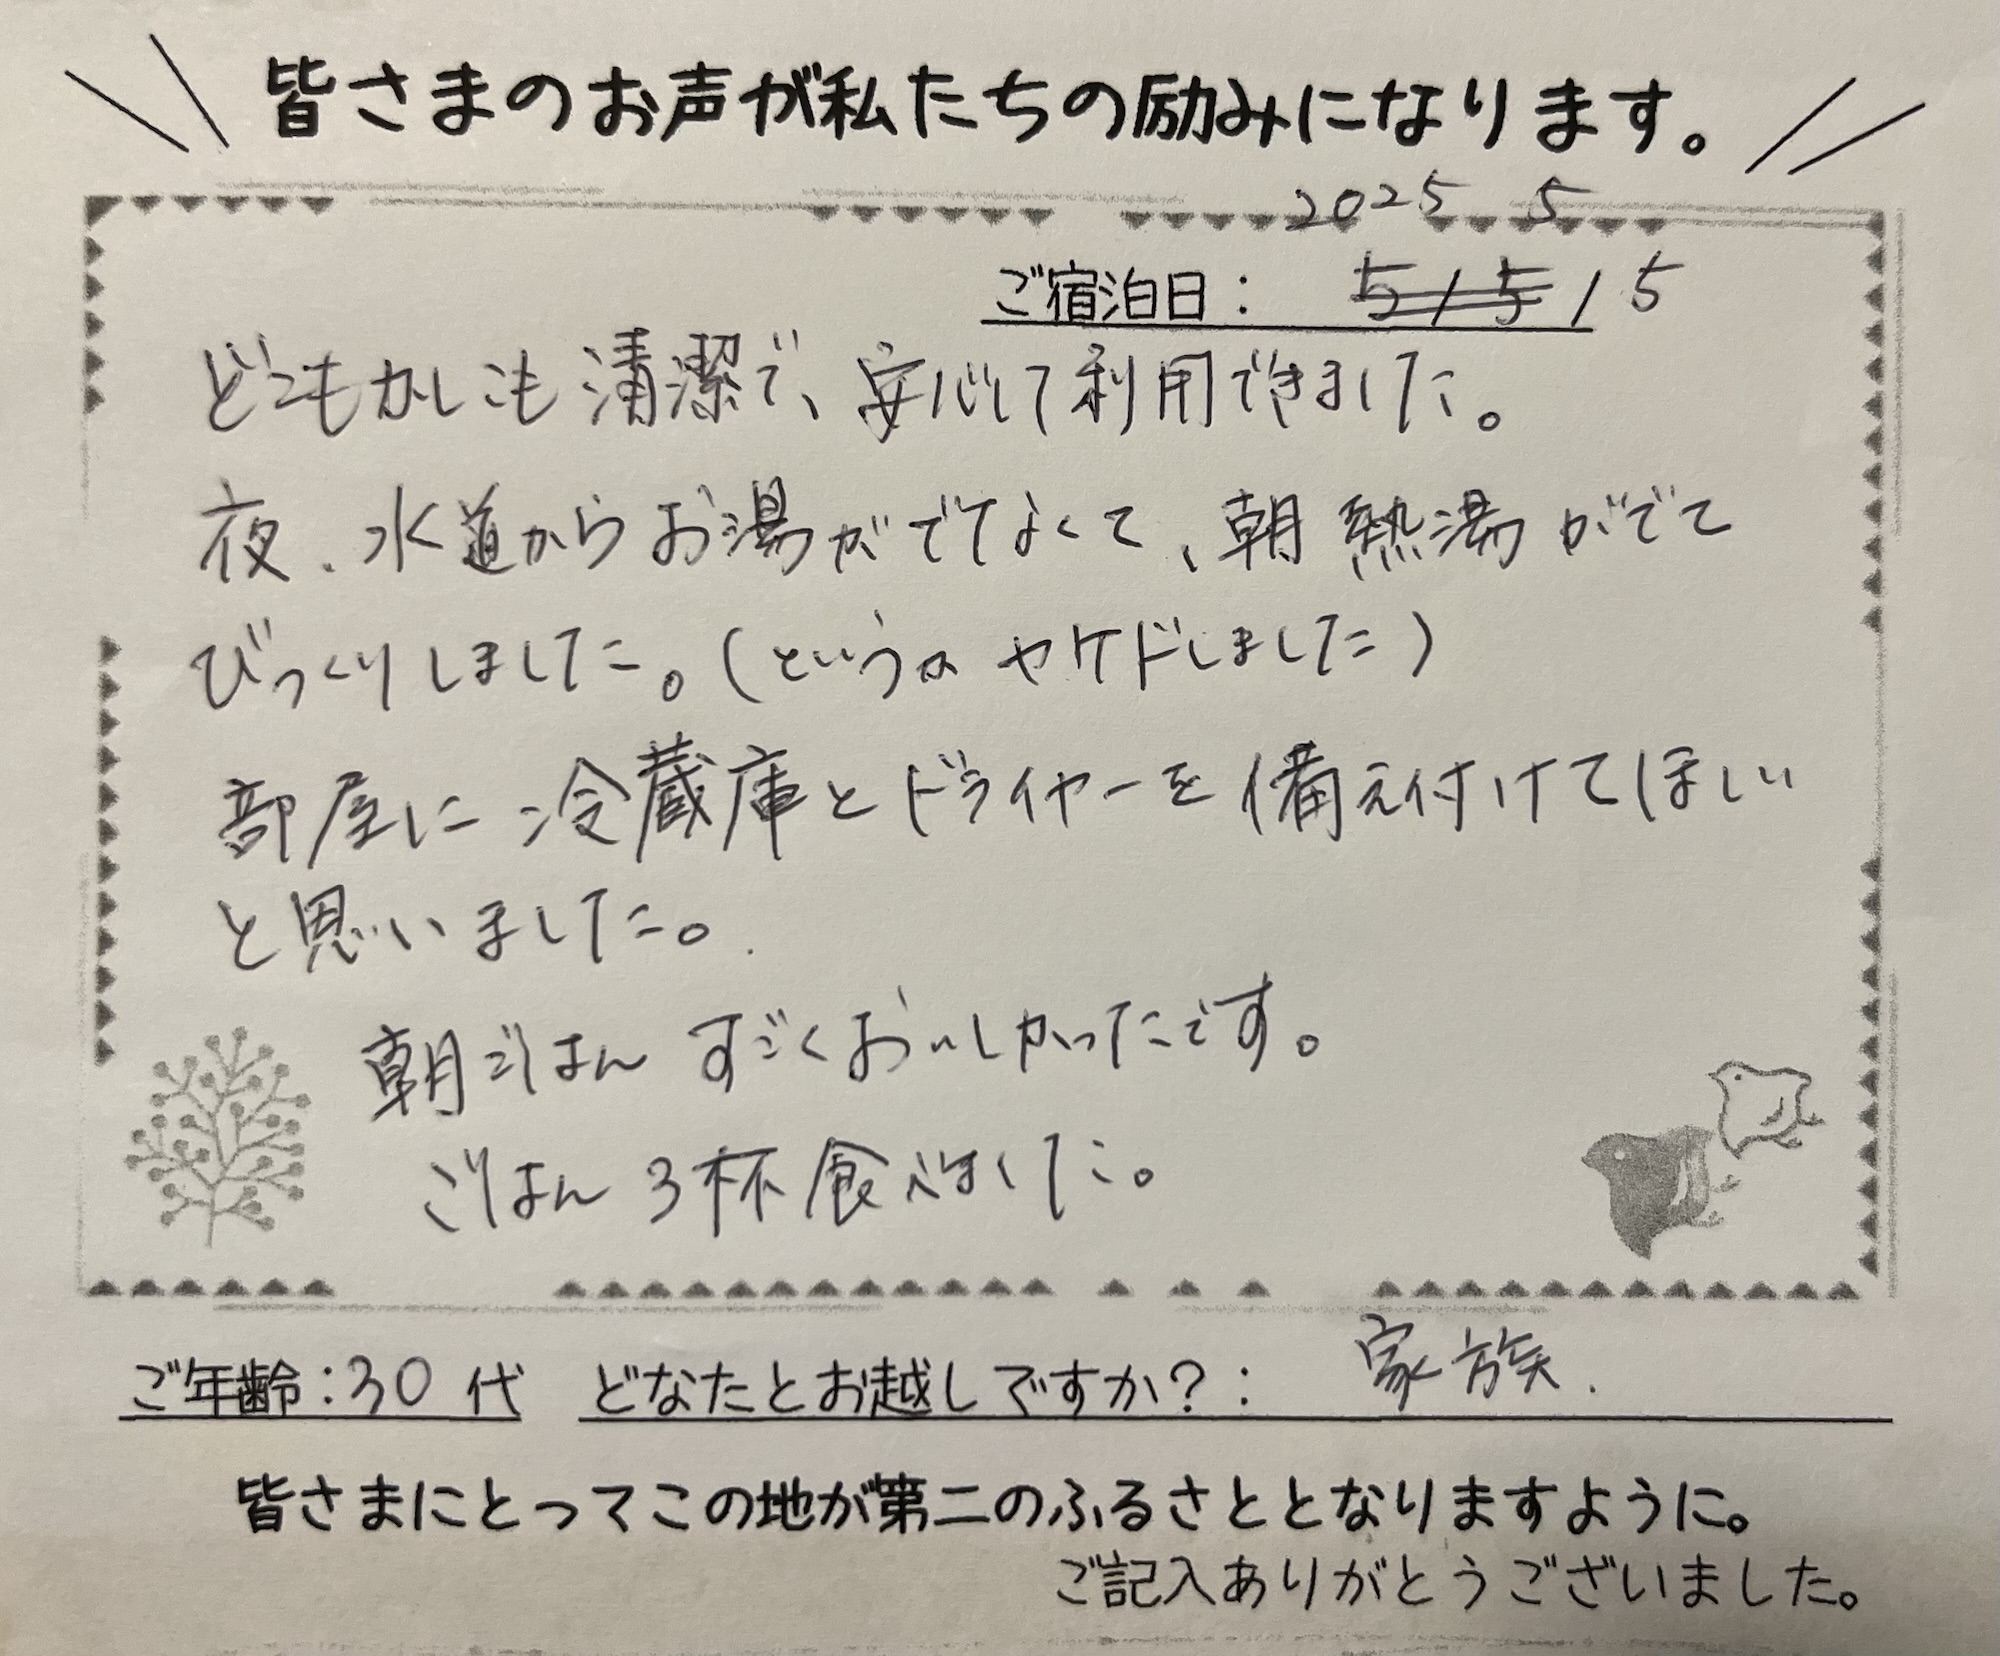 皆さまのお声が私たちの励みになります。
2025 5
ご宿泊日： 5/5/5
どこもかしこも清潔で、安心して利用できました。
夜、水道からお湯がでなくて、朝熱湯がでて
びっくりしました。(というかヤケドしました)
部屋に冷蔵庫とドライヤーを備え付けてほしい
と思いました。
朝ごはんすごくおいしかったです。
ごはん3杯食べました。
ご年齢：30代 どなたとお越しですか？： 家族.
皆さまにとってこの地が第二のふるさととなりますように。
ご記入ありがとうございました。